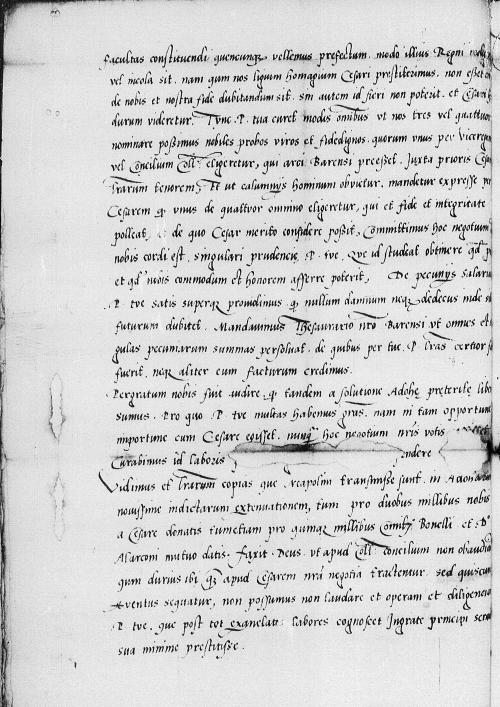 facultas constituendi quencunq3 vellemus prefectum. modo illius Regni
vel incola sit. nam qum nos ligium homagium Cesari prestiterimus. non esset
de nobis et nostra fide dubitandum sit. sin autem id fieri non poterit. et Cesari
durum videretur. Tunc .P. tua curet modis omnibus vt nos tres vel quattuor
nominare possimus nobiles probos viros et fidedignos. quorum vnus per viceregem
vel Concilium Coll: eligeretur, qui arci Barensi preesset. Iuxta prioris
lrarum tenorem. Et ut calumnijs hominum obvietur. mandetur expresse per
Cesarem q. vnus de quattuor omnino eligeretur, qui et fide et integritate
polleat, et de quo Cesar merito confidere possit, Committimus hoc negotium
nobis cordi est. singulari prudencie .P. tue, Que id studeat obtinere qd
et qd nobis commodum et honorem afferre poterit, De pecunijs
.P. tue satis superq3 providimus. q. nullum damnum neq3 dedecus inde
futurum dubitet. Mandavimus Thesaurario nro Barensi vt omnes et
gulas pecuniarum summas persolvat. de quibus per tue .P. lras certior
fuerit. neq3 aliter eum facturum credimus.
Pergratum nobis fuit audire. q. tandem a solutione Adohe preterite
sumus. Pro quo .P. tve multas habemus gras. nam ni tam opportune
importune cum Cesare egisset. nunq hoc negotium nris votis
Curabimus id laboris
Vidimus et lrarum copias que Neapolim transmisse sunt. in
novissime indictarum extenuationem, tum pro duobus millibus nobis
a Cesare donatis tumetiam pro quinq3 millibus Comiti Bonelli et D
Alarconi mutuo datis. Faxit Deus. vt apud Coll: concilium non
qum durius ibi q3 apud Cesarem nra negotia tractentur. sed
eventus sequatur, non possumus non laudare et operam et
.P. tue. que post tot exanclatos labores cognoscet Ingrate principi
sua minime prestitisse.